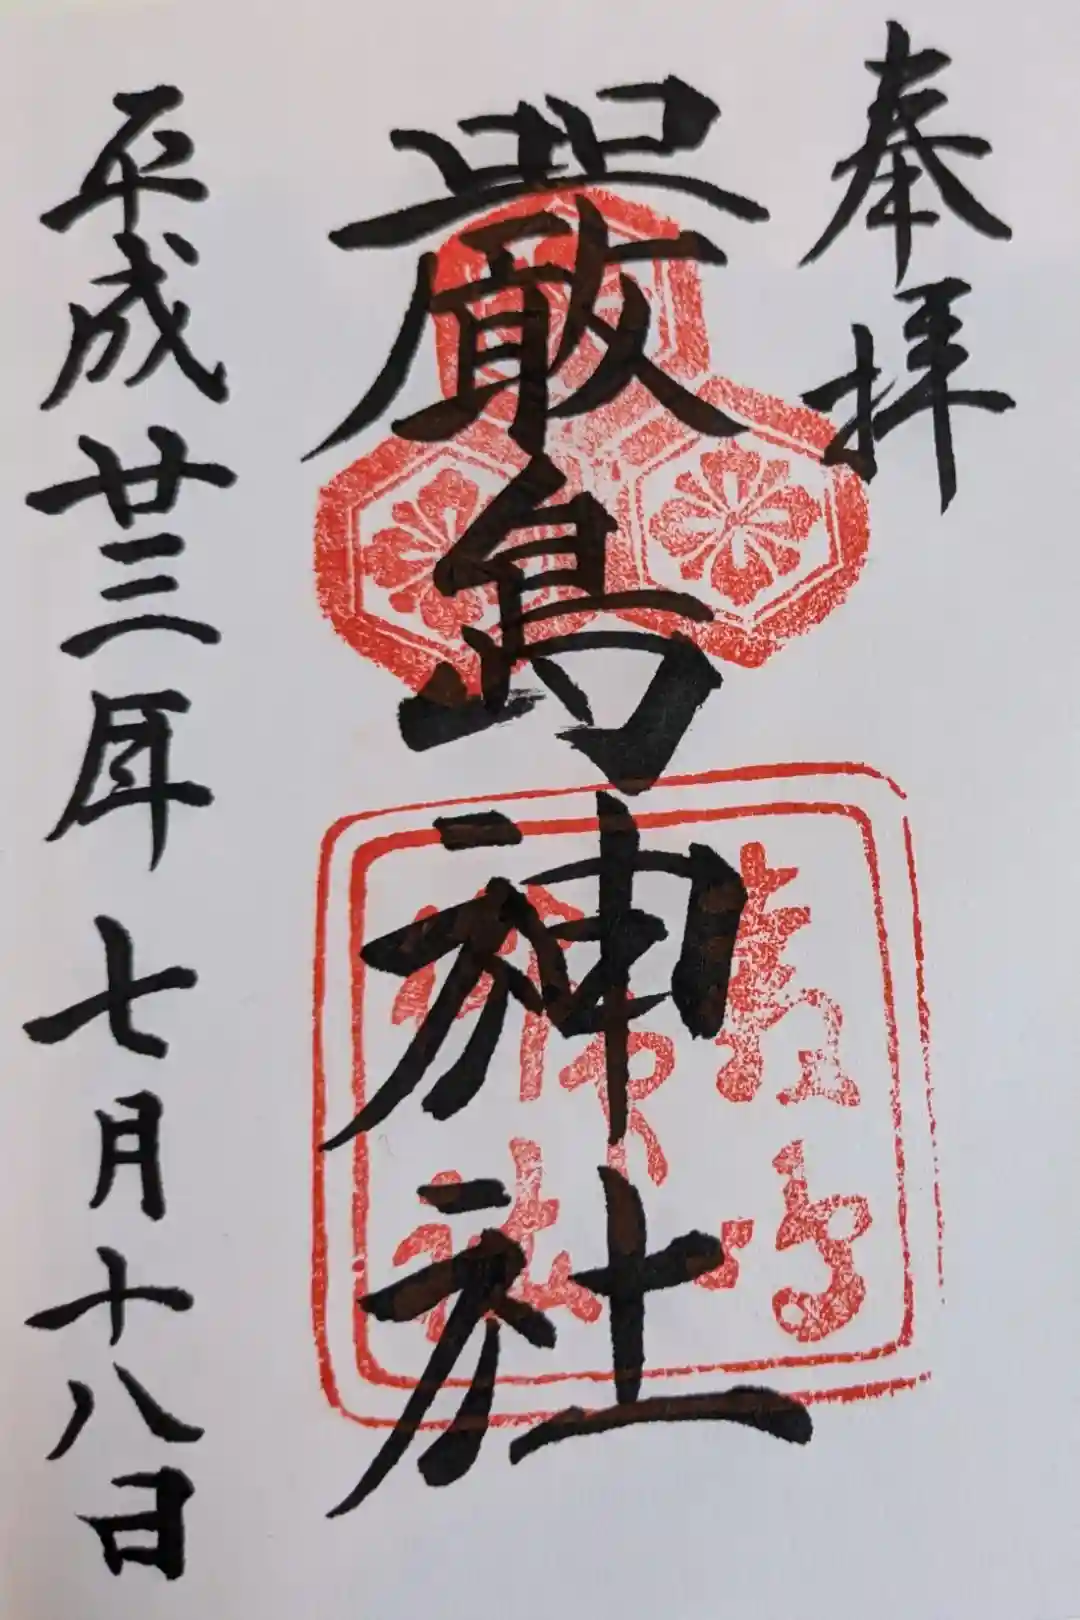 奉拝
嚴島神社
平成廿三年七月十八日
嚴島神社